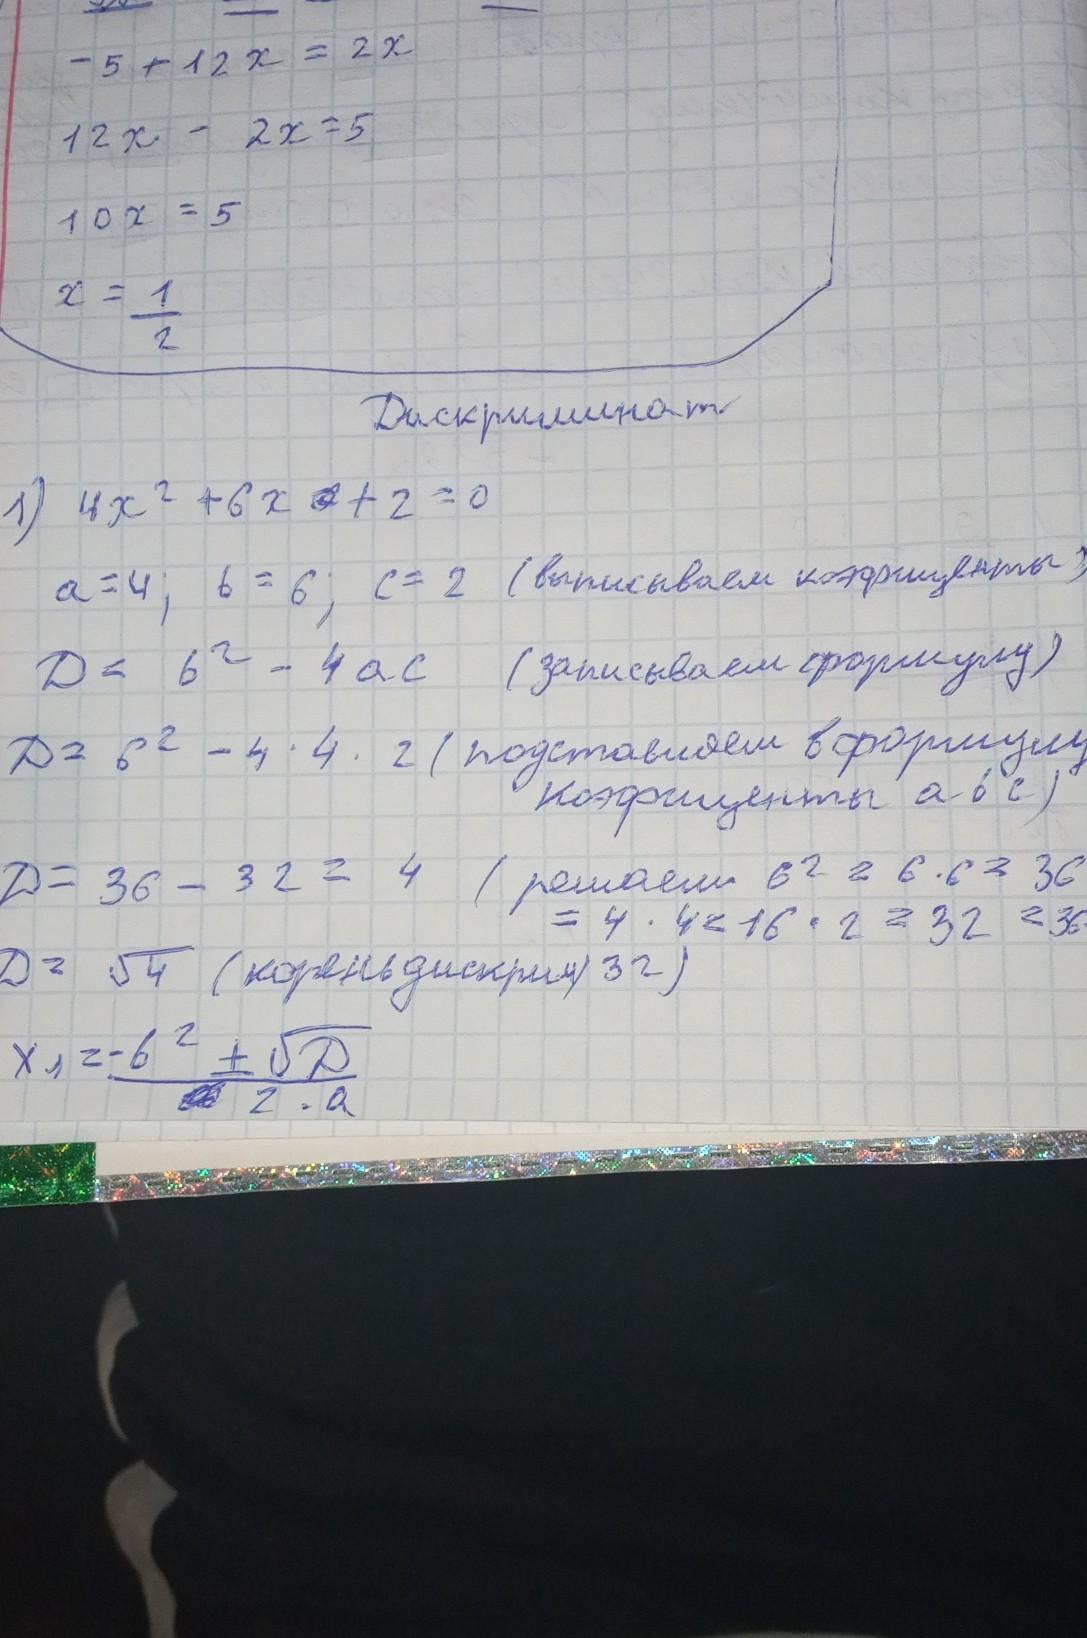 -5+12x = 2x
12x - 2x=5
10x = 5
x = 1/2
Дискриминат
1) 4x² +6x +2 =0
a=4; b=6; c=2 (выписываем коэфициенты)
D= b² - 4ac (записываем формулу)
D= 6² - 4·4·2 (подставляем в формулу
коэфициенты a b c)
D= 36 - 32 = 4 (решаем 6² = 6·6= 36
= 4·4=16·2=32 =36-
D= √4 (корень дискрим 32)
x₁ = -b² ± √D
2·a